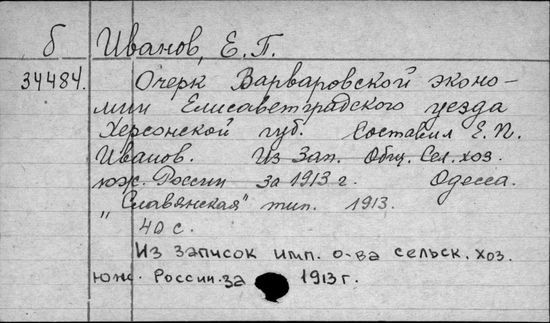 б Иванов, Е.П.
34484. Очерк Варваровской эконо-
мии Елисаветградского уезда
Херсонской губ. Составил Е.П.
Иванов. Из Зап. Общ. Сел. хоз.
юж. России за 1913 г. Одесса.
„Славянская" тип. 1913.
40 с.
Из записок имп. о-ва сельск. хоз.
юж. России за 1913 г.